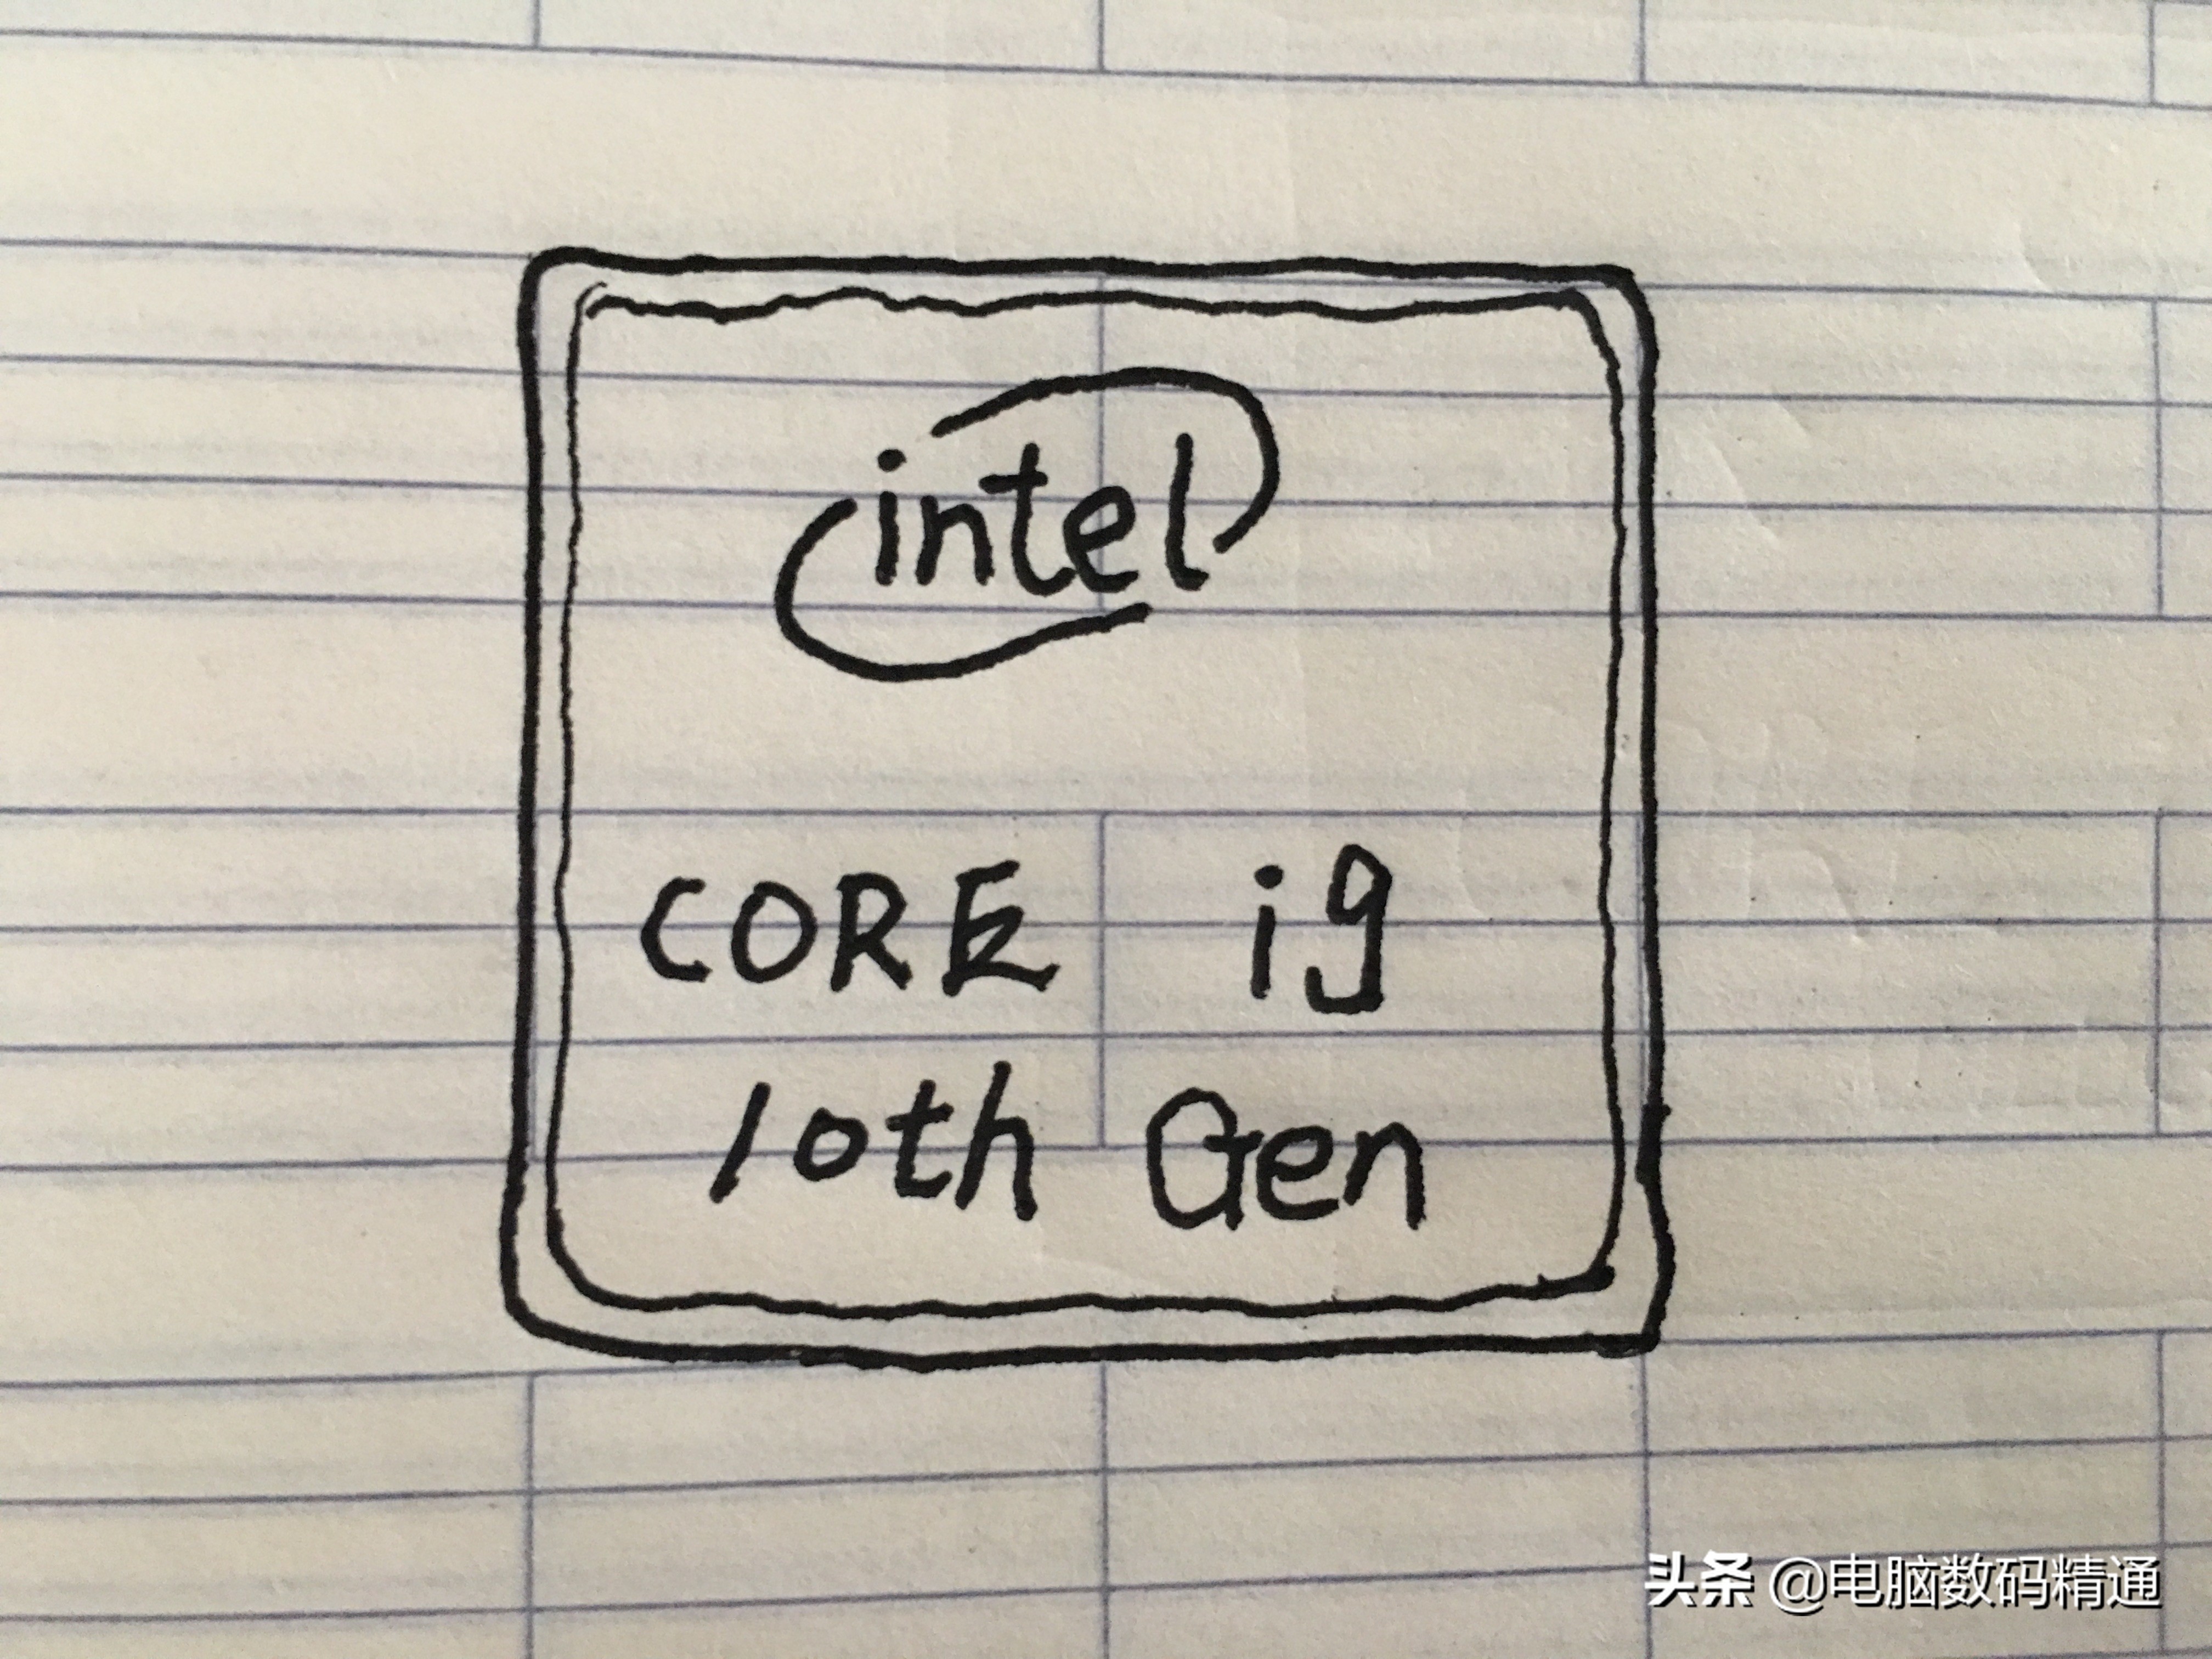 intel
CORE i9
10th Gen
头条 @电脑数码精通